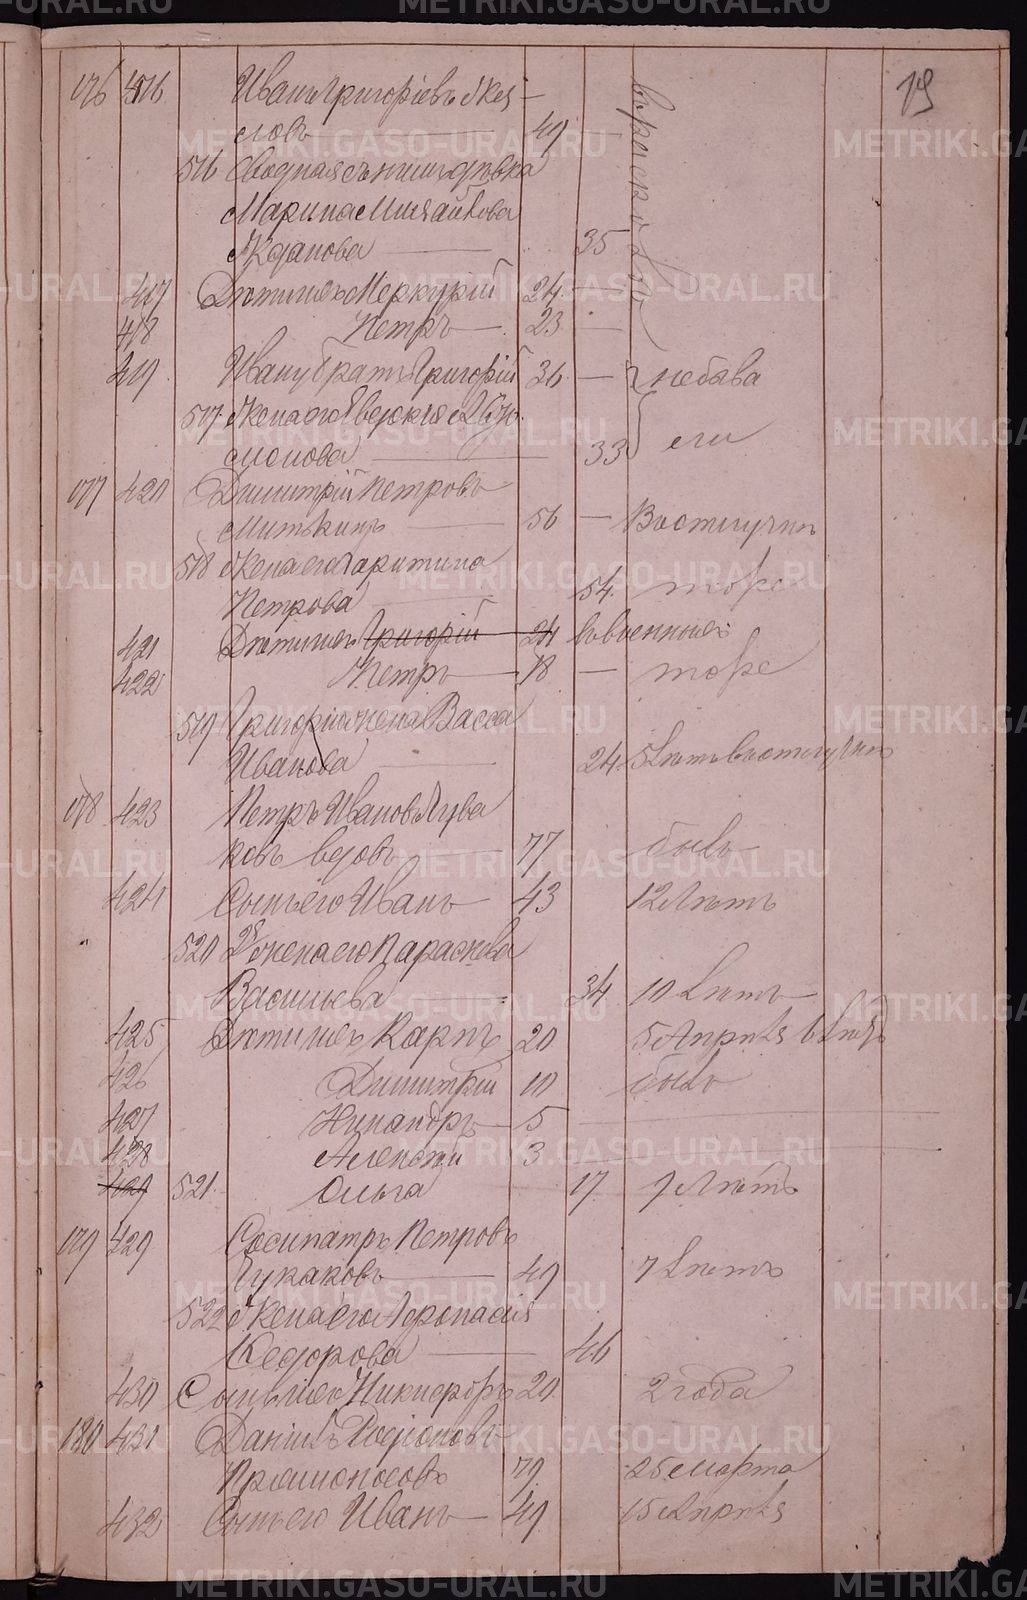 19
176 416 Иванъ Григорьевъ
словъ — 49
516 Сводная съ нимъ дѣвка
Марина Михайлова
Жданова — 35
417 Дѣти ихъ Меркурий 24 —
418 Петръ — 23 —
въ расколѣ
419 Ивану братъ Григорій 36 —
517 Жена его Евдокія
моновa — 33
177 420 Димитрій Петровъ
Митькинъ — 56 —
518 Жена его Харитина
Петрова — 54 тоже
421 Дѣти ихъ Григорій 24 въ военныхъ
422 Петръ — 18 — тоже
519 Григорія жена Васса
Иванова — 24 5 лѣтъ
178 423 Петръ Ивановъ Чува
ковъ вдовъ — 77 былъ
424 Сынъ его Иванъ — 43 12 лѣтъ
520 2я жена его Параскева
Васильева — 34 10 лѣтъ
425 Дѣти ихъ Карпъ 20 5 Апрѣля 6 лѣтъ
426 Димитрій 10 былъ
427 Никандръ — 5 —
428 Алексѣй 3 —
429 521 Ольга 17 7 лѣтъ
179 429 Сосипатръ Петровъ
Чукаковъ — 49 7 лѣтъ
522 Жена его Афонасія
Федорова — 46
430 Сынъ ихъ Никифоръ 20 2 года
180 431 Даніилъ Родіоновъ
Прямоносовъ 79 25 марта
432 Сынъ его Иванъ — 49 15 Апрѣля
METRIKI.GASO-URAL.RU